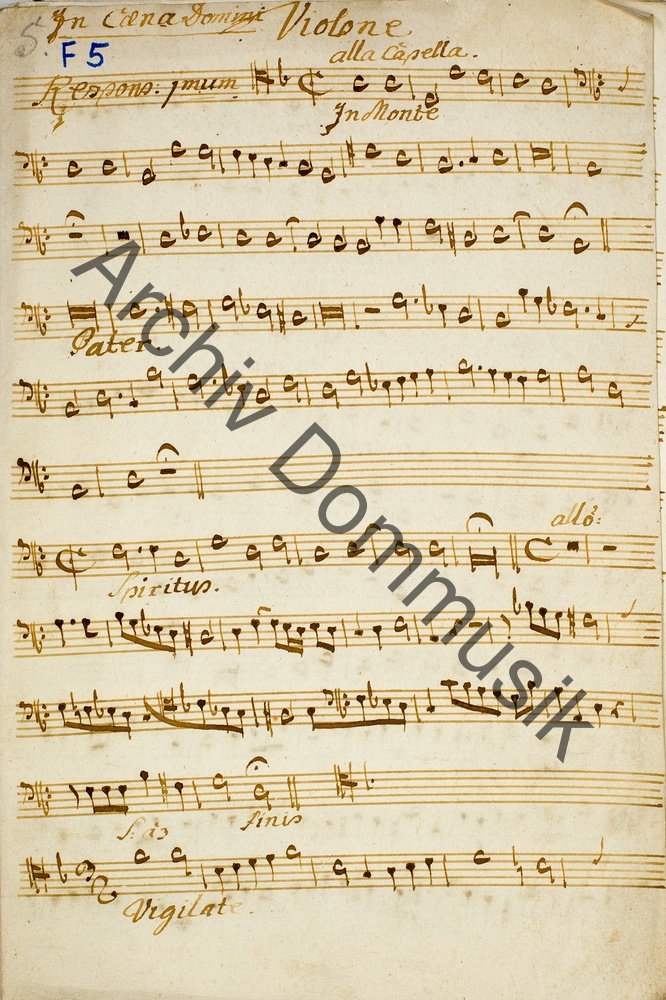 In Cæna Domini Violone
5.
F 5
alla Capella.
Respons: 1mum
In Monte
Pater.
allo:
Spiritus.
Finis
Vigilate.
Archiv Dommusik